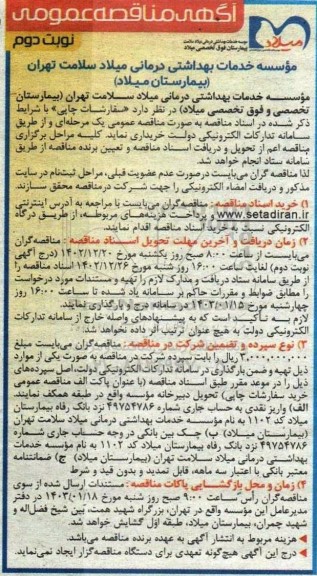 آگهی مناقصه عمومی
نوبت دوم
میلاد
موسسه خدمات بهداشتی درمانی میلاد سلامت تهران
بیمارستان فوق تخصصی میلاد
مؤسسه خدمات بهداشتی درمانی میلاد سلامت تهران
(بیمارستان میلاد)
مؤسسه خدمات بهداشتی درمانی میلاد سلامت تهران (بیمارستان
تخصصی و فوق تخصصی میلاد) در نظر دارد «سفارشات چاپی» با شرایط
ذکر شده در اسناد مناقصه به صورت مناقصه عمومی یک مرحله‌ای و از طریق
سامانه تدارکات الکترونیکی دولت خریداری نماید. کلیه مراحل برگزاری
مناقصه اعم از تحویل و دریافت اسناد مناقصه و تعیین برنده مناقصه از طریق
سامانه ستاد انجام خواهد شد.
لذا مناقصه گران می‌بایست درصورت عدم عضویت قبلی، مراحل ثبت‌نام در سایت
مذکور و دریافت امضاء الکترونیکی را جهت شرکت درمناقصه محقق سازند.
۱) خرید اسناد مناقصه: مناقصه‌گران می‌بایست با مراجعه به آدرس اینترنتی
www.setadiran.ir و پرداخت هزینه‌های مربوطه، از طریق درگاه
الکترونیکی نسبت به خرید اسناد مناقصه اقدام نمایند.
۲) زمان دریافت و آخرین مهلت تحویل اسناد مناقصه: مناقصه‌گران
می‌بایست از ساعت ۸:۰۰ صبح روز یکشنبه مورخ ۱۴۰۲/۱۲/۲۰ (درج آگهی
نوبت دوم) لغایت ساعت ۱۶:۰۰ روز شنبه مورخ ۱۴۰۲/۱۲/۲۶ اسناد مناقصه را
از طریق سامانه ستاد دریافت و مدارک لازم را تهیه و مستندات مورد درخواست
را مطابق ضوابط و مقررات حاکم بر سامانه یاد شده تا ساعت ۱۶:۰۰ روز
چهارشنبه مورخ ۱۴۰۳/۰۱/۱۵ در سامانه درج و بارگذاری نمایند.
لازم به تأکید است که به پیشنهادهای واصله خارج از سامانه تدارکات
الکترونیکی دولت به هیچ عنوان ترتیب اثر داده نخواهد شد.
۳) نوع سپرده و تضمین شرکت در مناقصه: مناقصه‌گران می‌بایست مبلغ
۳,۰۰۰,۰۰۰,۰۰۰ ریال را بابت سپرده شرکت در مناقصه به صورت یکی از موارد
ذیل تهیه و ضمن بارگذاری در سامانه تدارکات الکترونیکی دولت، اصل سپرده‌های
ذیل را در موعد مقرر طبق اسناد مناقصه (با عنوان پاکت الف مناقصه عمومی
خرید سفارشات چاپی) تحویل دبیرخانه مؤسسه واقع در طبقه همکف نمایند.
الف) واریز نقدی به حساب جاری شماره ۴۹۷۵۴۷۸۶ نزد بانک رفاه بیمارستان
میلاد کد ۱۱۰۲ به نام مؤسسه خدمات بهداشتی درمانی میلاد سلامت تهران
(بیمارستان میلاد) ب) چک بین بانکی در وجه حساب جاری شماره
۴۹۷۵۴۷۸۶ نزد بانک رفاه بیمارستان میلاد کد ۱۱۰۲ به نام مؤسسه خدمات
بهداشتی درمانی میلاد سلامت تهران (بیمارستان میلاد) ج) ضمانتنامه
معتبر بانکی با اعتبار سه ماهه، قابل تمدید و بدون قید و شرط
۴) زمان و محل بازگشایی پاکات مناقصه: مستندات ارسال شده از سوی
مناقصه‌گران رأس ساعت ۹:۰۰ صبح روز شنبه مورخ ۱۴۰۳/۰۱/۱۸ در دفتر
مدیرعامل این مؤسسه واقع در تهران، بزرگراه شهید همت، بین شیخ فضل‌اله و
شهید چمران، بیمارستان میلاد، طبقه اول گشایش خواهد شد.
هزینه مربوط به انتشار آگهی به عهده برنده مناقصه می‌باشد.
درج این آگهی هیچ‌گونه تعهدی برای دستگاه مناقصه‌گزار ایجاد نمی‌نماید.